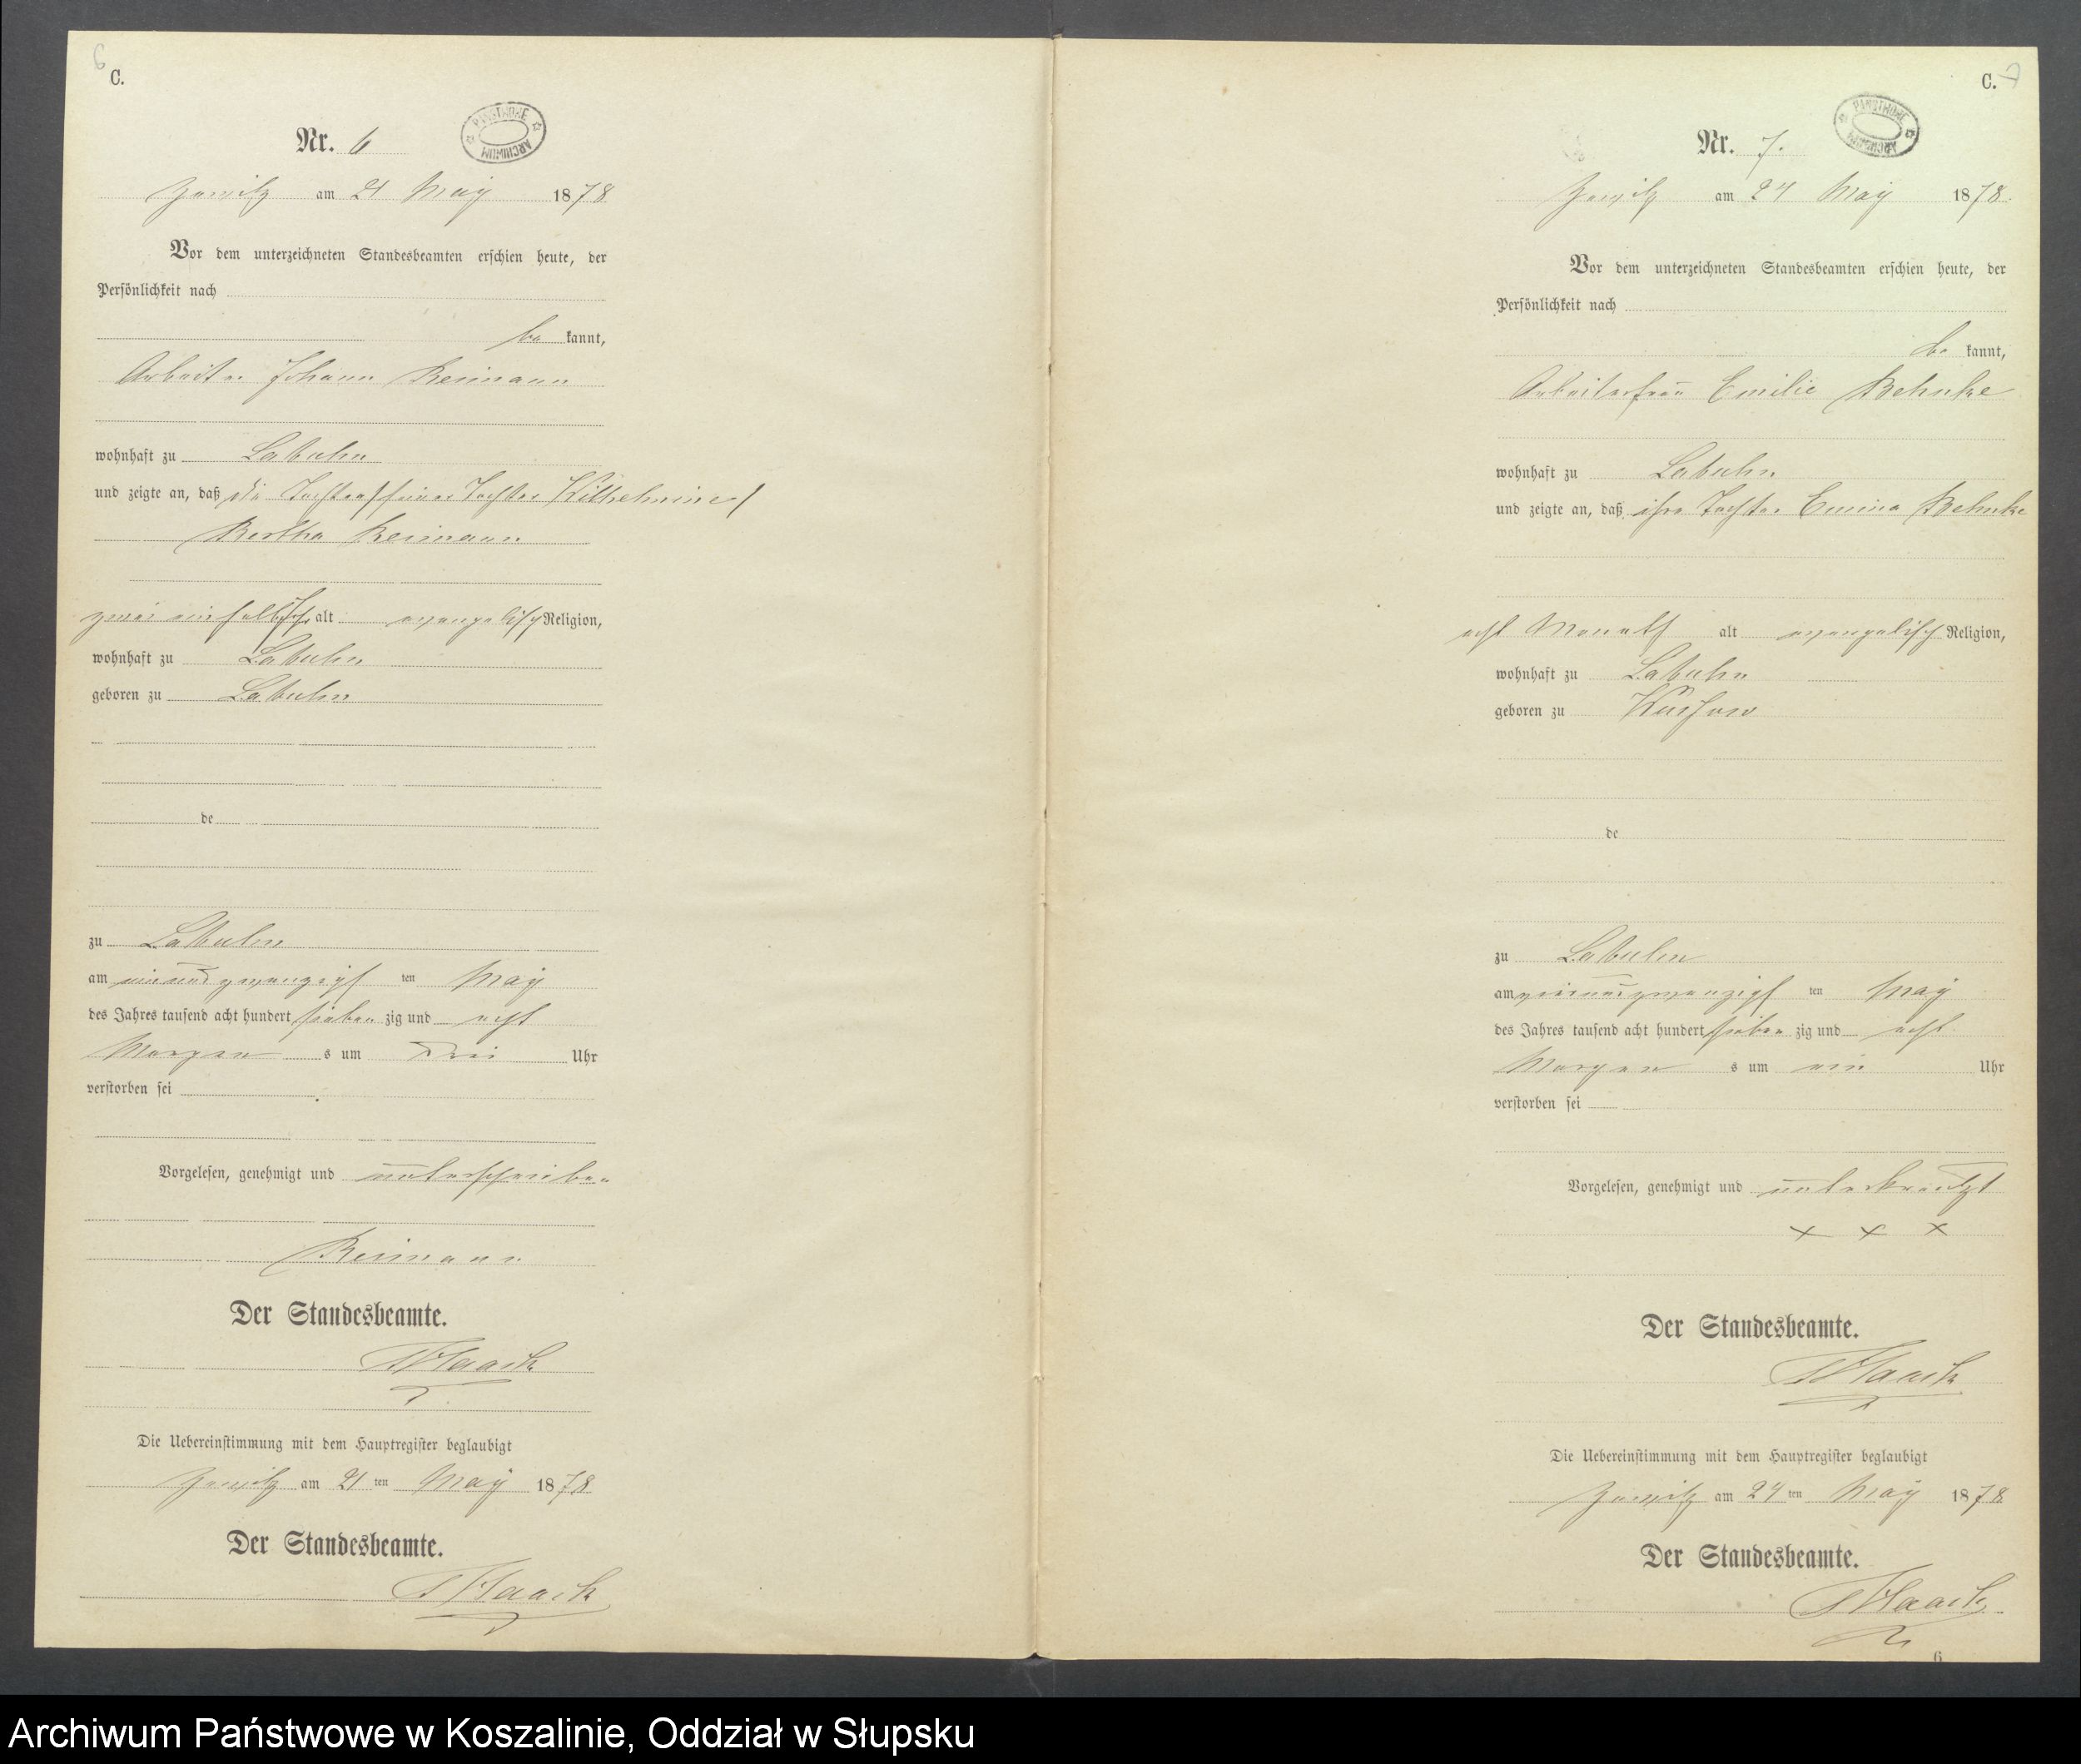 6
C.
Nr. 6
PAŃSTWOWE ARCHIWUM
Zewitz am 21 May 1878
Vor dem unterzeichneten Standesbeamten erschien heute, der
Persönlichkeit nach
be kannt,
Arbeiter Johann Reimann
wohnhaft zu Labuhn
und zeigte an, daß die Tochter seiner Tochter Wilhelmine
Bertha Reimann
zwei ein halb alt evangelisch Religion,
wohnhaft zu Labuhn
geboren zu Labuhn
de
zu Labuhn
am ein und zwanzigst ten May
des Jahres tausend acht hundert sieben zig und acht
Morgen s um drei Uhr
verstorben sei
Vorgelesen, genehmigt und unterschrieben
Reimann
Der Standesbeamte.
Haack
Die Uebereinstimmung mit dem Hauptregister beglaubigt
Zewitz am 21 ten May 1878
Der Standesbeamte.
Haack
C. 7
Nr. 7.
PAŃSTWOWE ARCHIWUM
Zewitz am 24 May 1878.
Vor dem unterzeichneten Standesbeamten erschien heute, der
Persönlichkeit nach
be kannt,
Arbeiterfrau Emilie Behnke
wohnhaft zu Labuhn
und zeigte an, daß ihre Tochter Emma Behnke
acht Monath alt evangelisch Religion,
wohnhaft zu Labuhn
geboren zu
de
zu Labuhn
am vierundzwanzigst ten May
des Jahres tausend acht hundert sieben zig und acht
Morgen s um ein Uhr
verstorben sei
Vorgelesen, genehmigt und unterkreutzt
x x x
Der Standesbeamte.
Haack
Die Uebereinstimmung mit dem Hauptregister beglaubigt
Zewitz am 24 ten May 1878
Der Standesbeamte.
Haack
6
Archiwum Państwowe w Koszalinie, Oddział w Słupsku